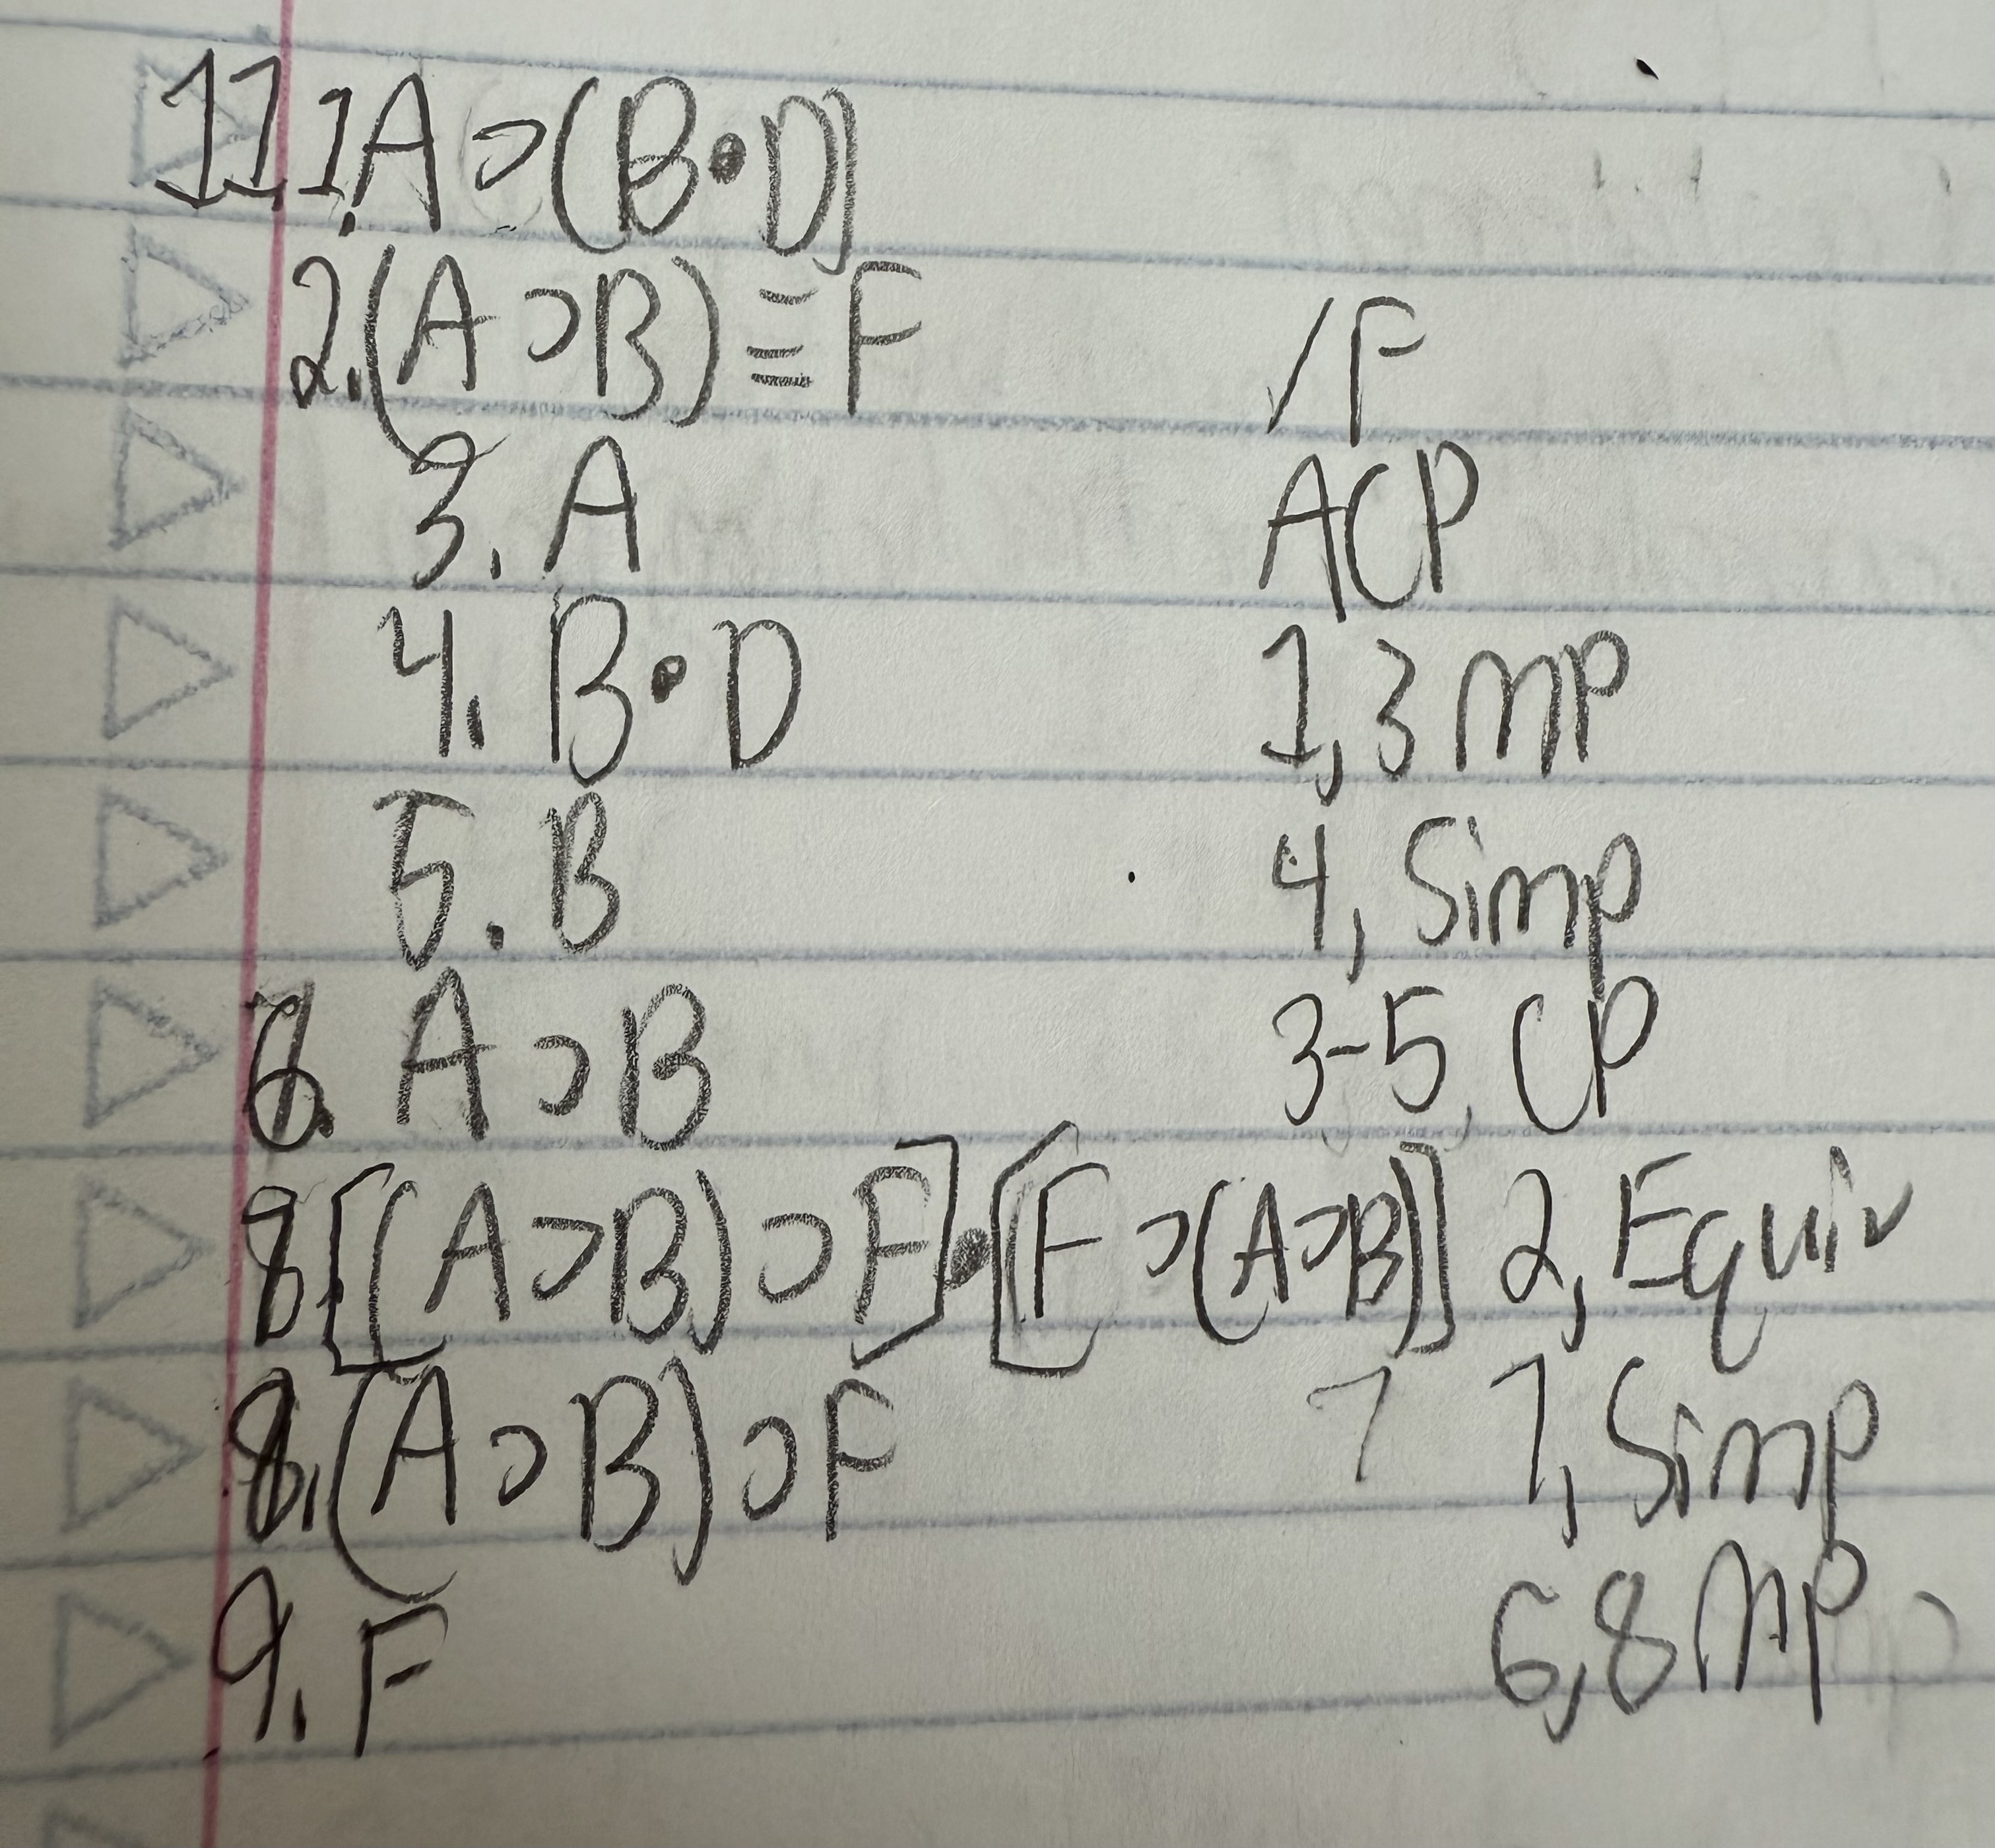 11. 1. A ⊃ (B • D)
2. (A ⊃ B) ≡ F /F
3. A ACP
4. B • D 1,3 MP
5. B 4, Simp
6. A ⊃ B 3-5, CP
8 [(A ⊃ B) ⊃ F] • [F ⊃ (A ⊃ B)] 2, Equiv
8. (A ⊃ B) ⊃ F 7 7, Simp
9. F 6,8 MP